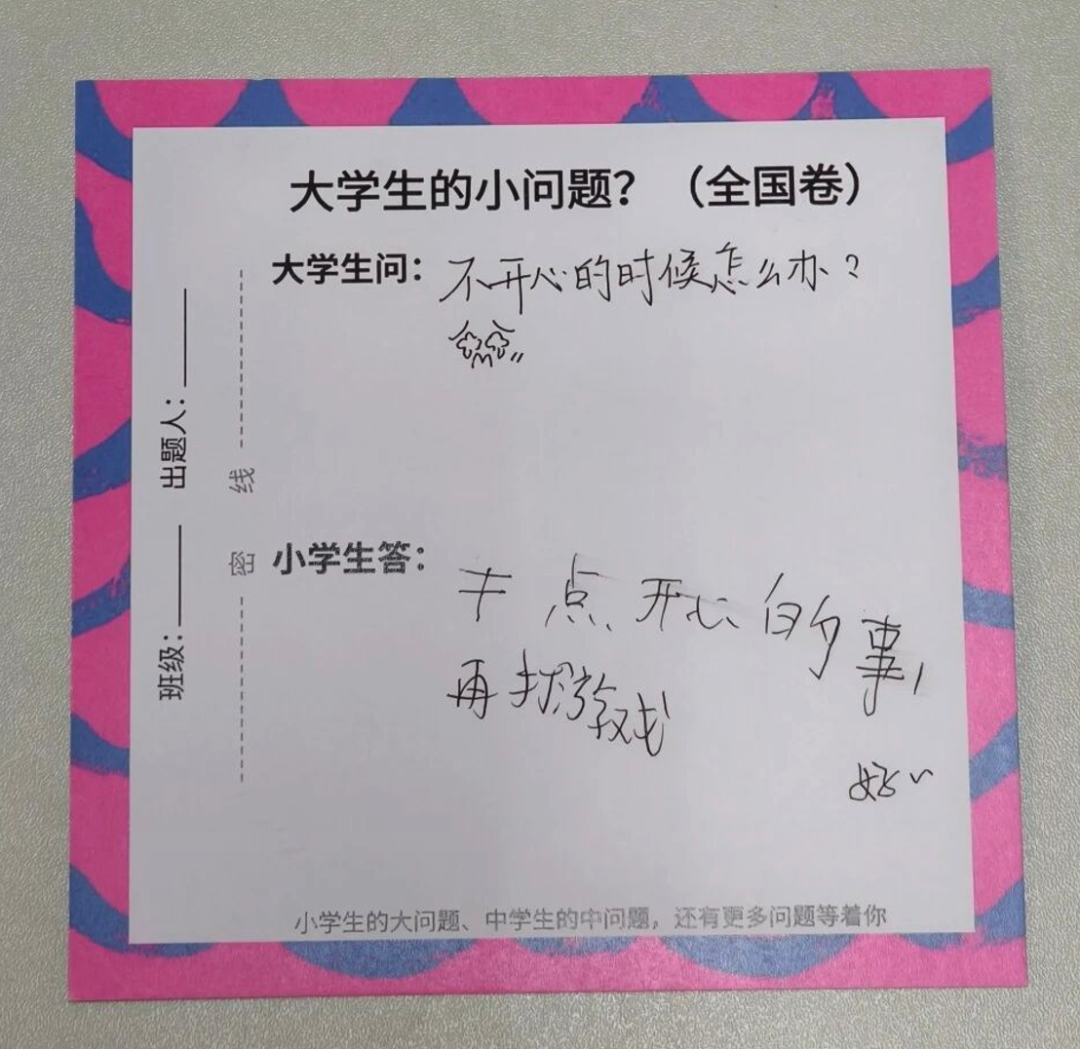 大学生的小问题？（全国卷）
大学生问：不开心的时候怎么办？
小学生答：
干点开心的事，
再打游戏
好~
出题人：
班级：
线
密
小学生的大问题、中学生的中问题，还有更多问题等着你